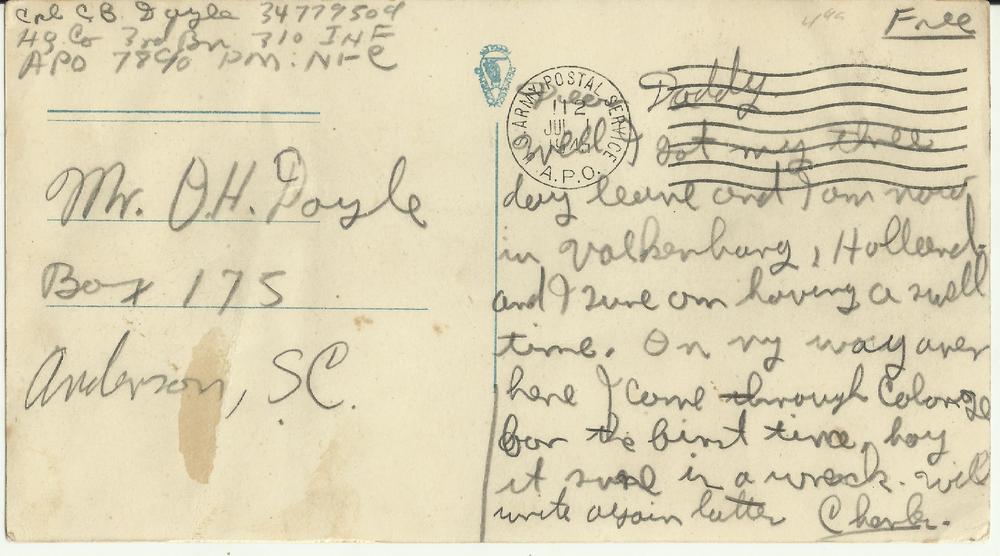 Cpl C.B. Doyle 34779509
Hq Co 3rd Bn 310 INF
APO 78 PM: NYC
Free
U.S. ARMY POSTAL SERVICE
12
JUL
1945
A.P.O.
Mr. O.H. Doyle
Box 175
Anderson, SC.
Dear Daddy
Well I got my three
day leave and I am now
in Valkenburg, Holland
and I sure am having a swell
time. On my way over
here I come through Cologne
for the first time, boy
it sure is a wreck. Will
write again latter Charles.